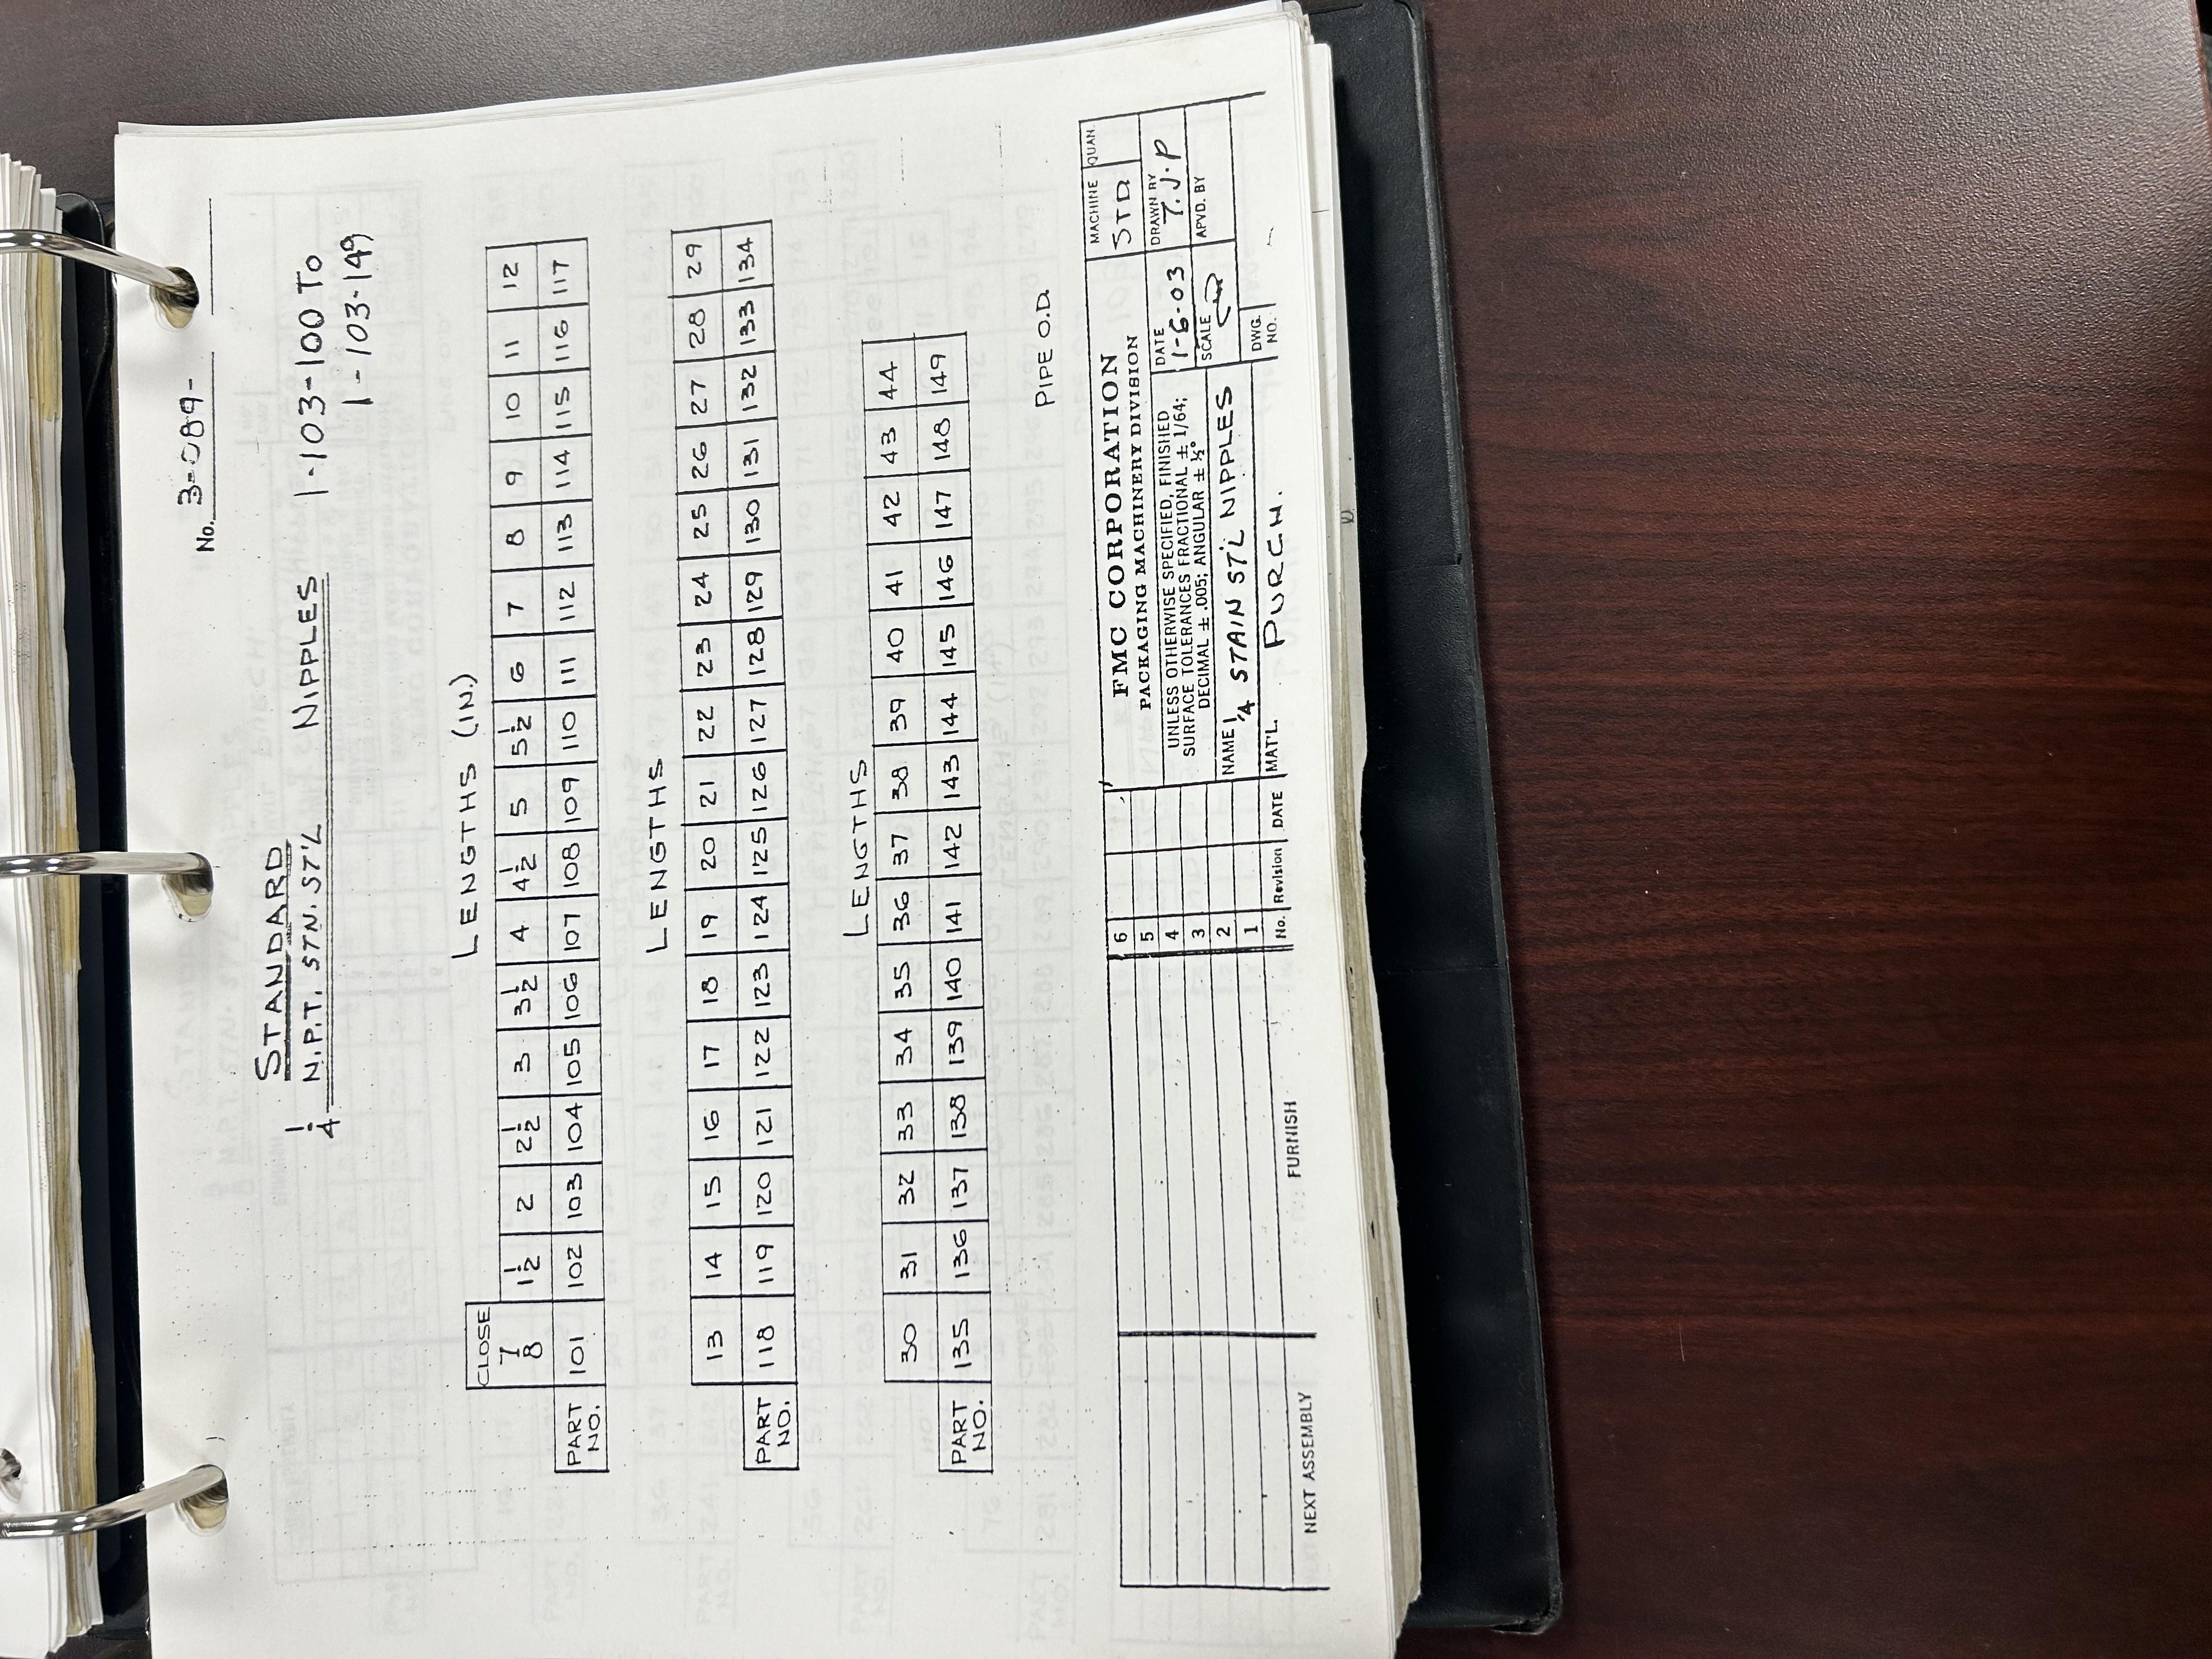 No. 3-089-
STANDARD
1/4 N.P.T. STN. ST'L NIPPLES 1-103-100 TO
1-103-149
LENGTHS (IN.)
CLOSE
7/8 1 1/2 2 2 1/2 3 3 1/2 4 4 1/2 5 5 1/2 6 7 8 9 10 11 12
PART NO. 101 102 103 104 105 106 107 108 109 110 111 112 113 114 115 116 117
LENGTHS
13 14 15 16 17 18 19 20 21 22 23 24 25 26 27 28 29
PART NO. 118 119 120 121 122 123 124 125 126 127 128 129 130 131 132 133 134
LENGTHS
30 31 32 33 34 35 36 37 38 39 40 41 42 43 44
PART NO. 135 136 137 138 139 140 141 142 143 144 145 146 147 148 149
PIPE O.D.
6
5
4
3
2
1
No. Revision DATE
NEXT ASSEMBLY
FURNISH
FMC CORPORATION
PACKAGING MACHINERY DIVISION
UNLESS OTHERWISE SPECIFIED, FINISHED
SURFACE TOLERANCES FRACTIONAL ± 1/64;
DECIMAL ± .005; ANGULAR ± ½°
NAME 1/4 STAIN ST'L NIPPLES
MAT'L. PURCH.
MACHINE STD
QUAN.
DATE 1-6-03
DRAWN BY T.J.P
SCALE
APVD. BY
DWG. NO.